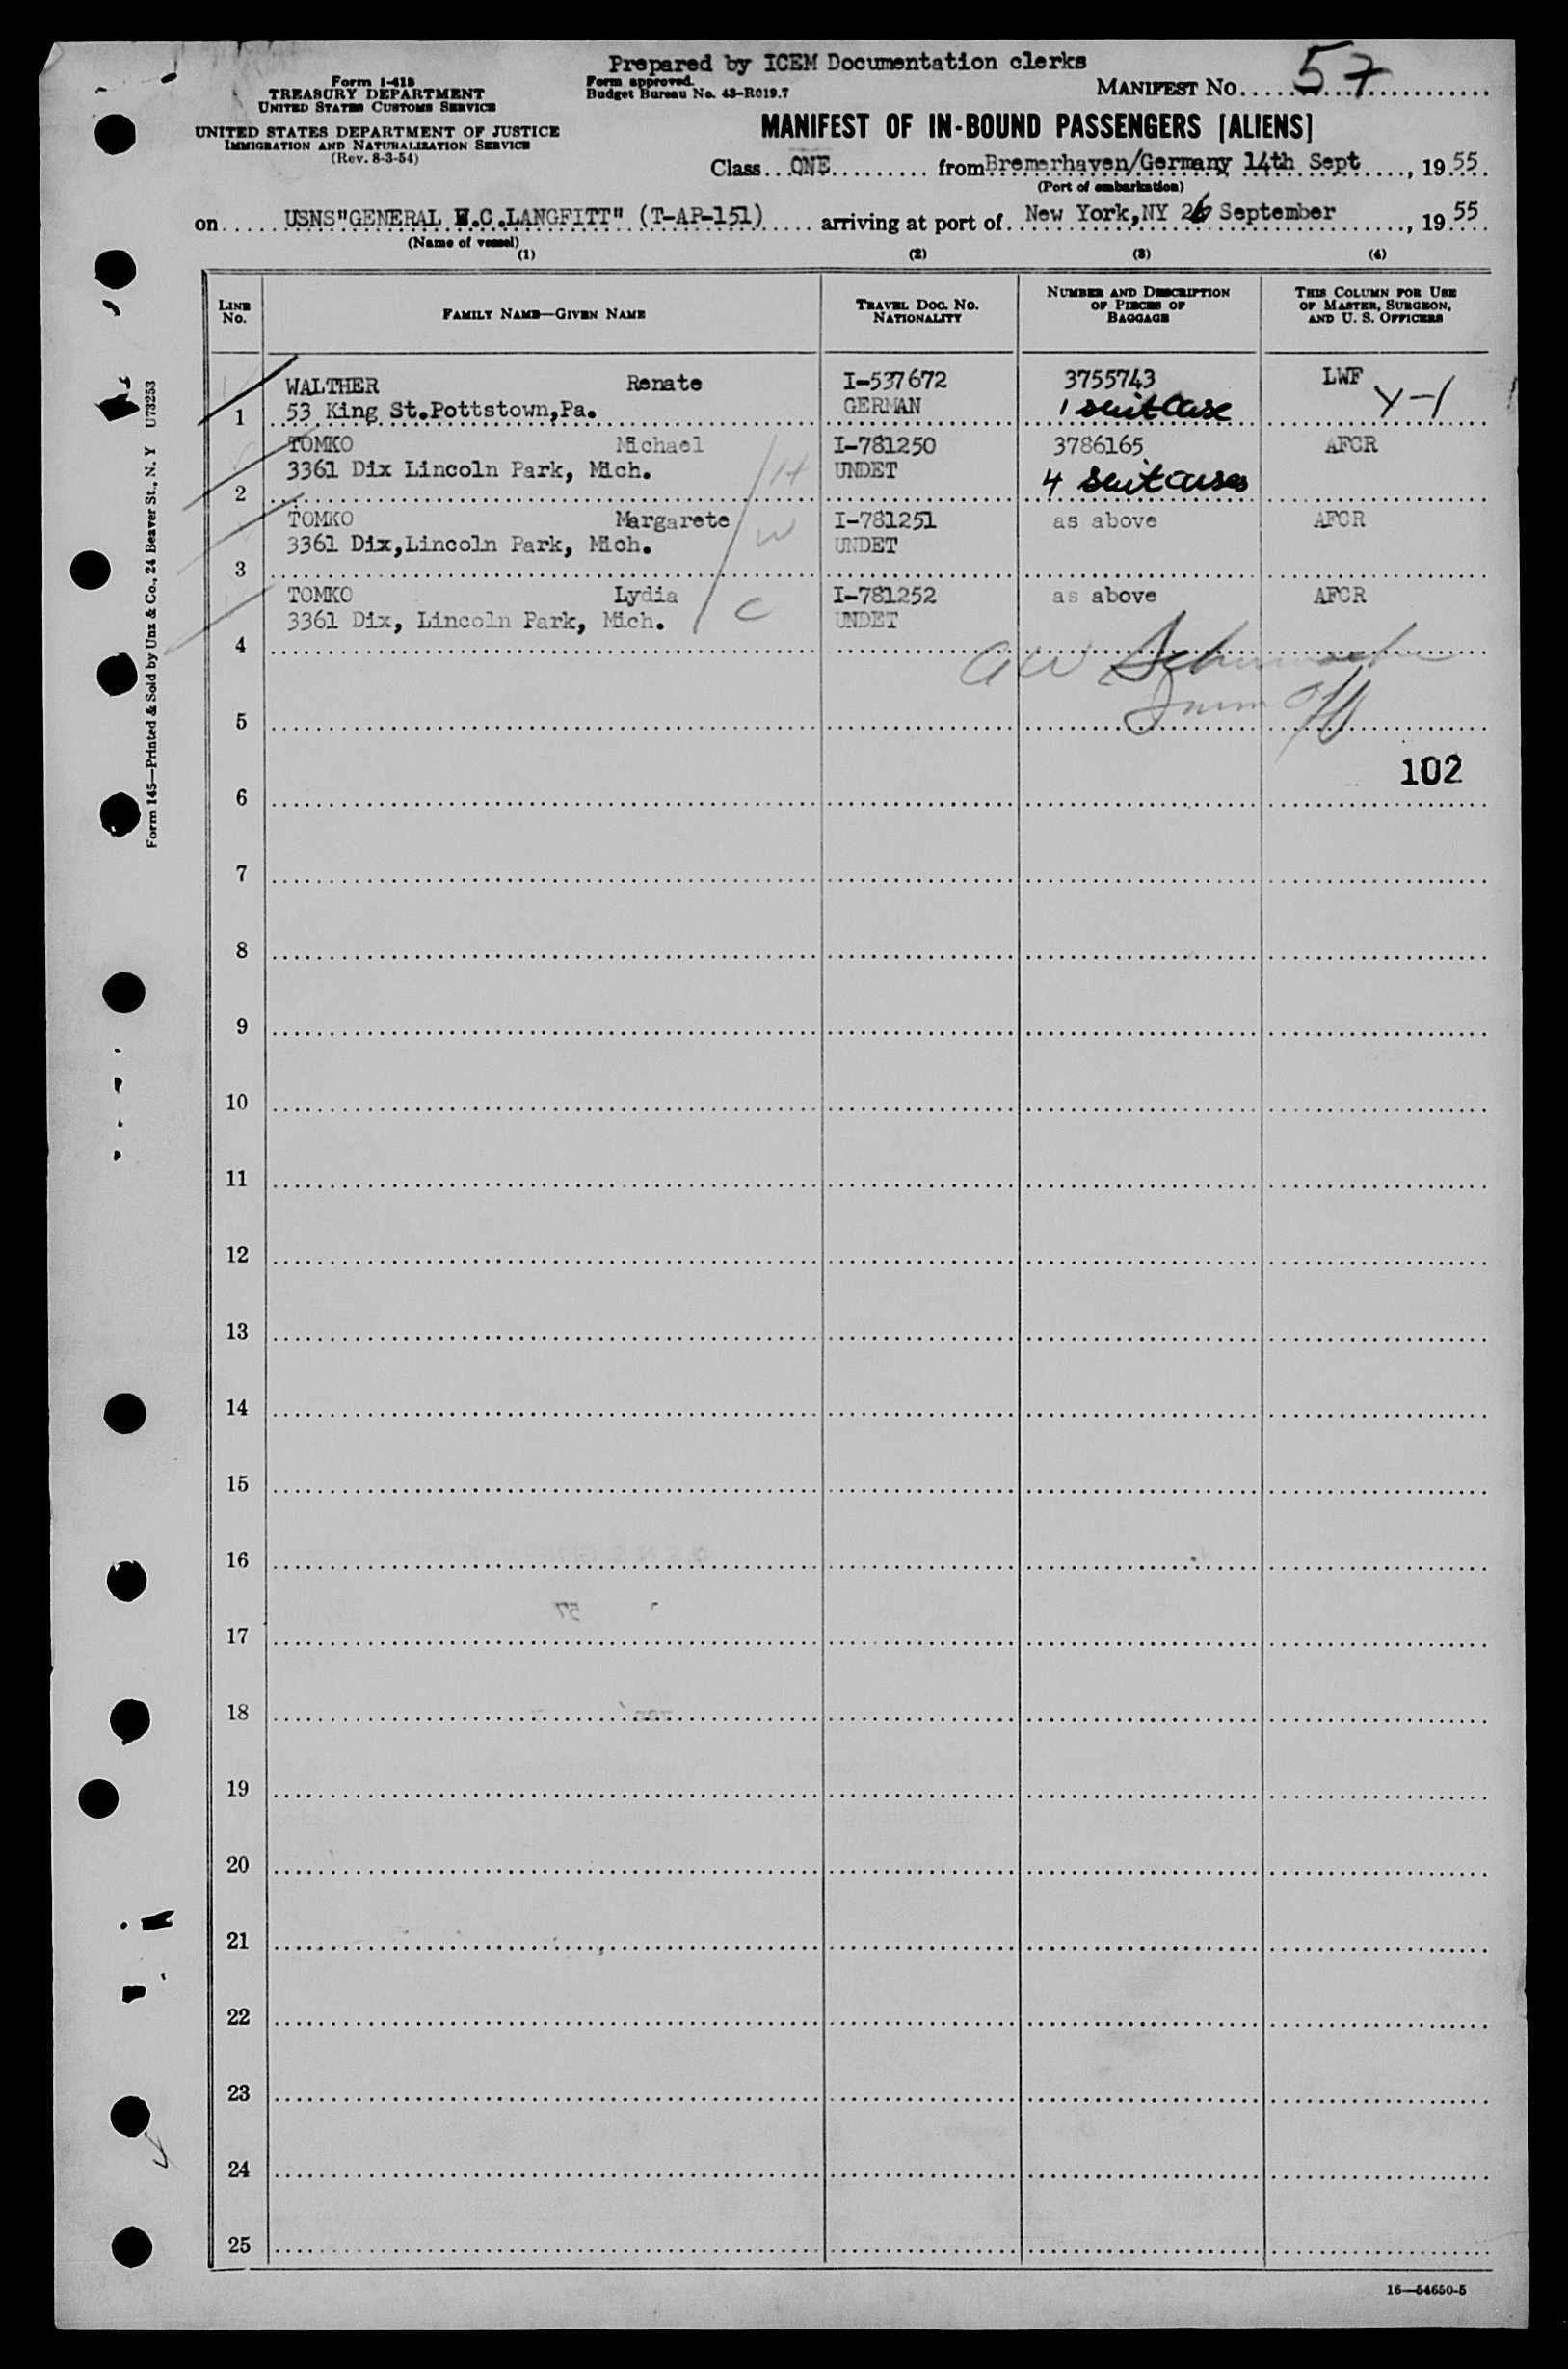 Prepared by ICEM Documentation clerks
Form I-418
TREASURY DEPARTMENT
UNITED STATES CUSTOMS SERVICE
Form approved.
Budget Bureau No. 43-R019.7
MANIFEST NO. 57
UNITED STATES DEPARTMENT OF JUSTICE
IMMIGRATION AND NATURALIZATION SERVICE
(Rev. 8-3-54)
MANIFEST OF IN-BOUND PASSENGERS [ALIENS]
Class ONE from Bremerhaven/Germany 14th Sept, 1955
(Port of embarkation)
on USNS"GENERAL W.C.LANGFITT" (T-AP-151) arriving at port of New York,NY 26 September, 1955
(Name of vessel)
(1) (2) (3) (4)
LINE NO. FAMILY NAME—GIVEN NAME TRAVEL DOC. NO. NATIONALITY NUMBER AND DESCRIPTION OF PIECES OF BAGGAGE THIS COLUMN FOR USE OF MASTER, SURGEON, AND U. S. OFFICERS
WALTHER Renate I-537672 3755743 LWF Y-1
1 53 King St.Pottstown,Pa. GERMAN 1 suitcase
TOMKO Michael H I-781250 3786165 AFCR
3361 Dix Lincoln Park, Mich. UNDET 4 suitcases
2
TOMKO Margarete W I-781251 as above AFCR
3361 Dix,Lincoln Park, Mich. UNDET
3
TOMKO Lydia C I-781252 as above AFCR
3361 Dix, Lincoln Park, Mich. UNDET
4
5
102
6
7
8
9
10
11
12
13
14
15
16
17
18
19
20
21
22
23
24
25
16—54650-5
Form 145—Printed & Sold by Unz & Co., 24 Beaver St., N. Y U73253